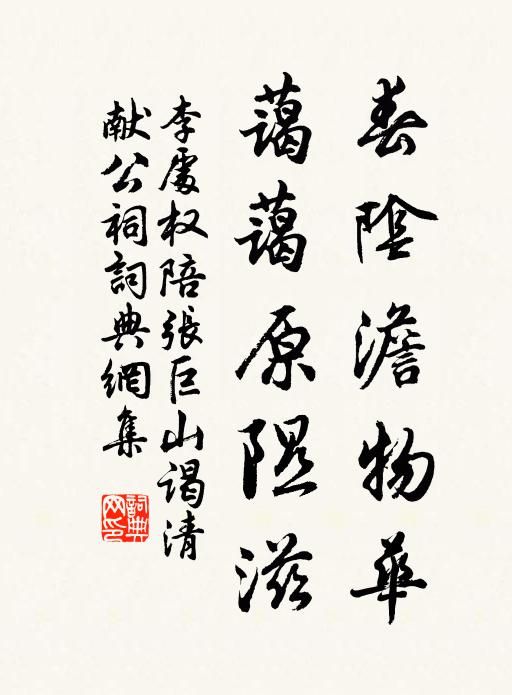 春陰澹物華
藹藹原隰滋
李處权陪張巨山谒清
献公祠詞典網集
詞典
网印